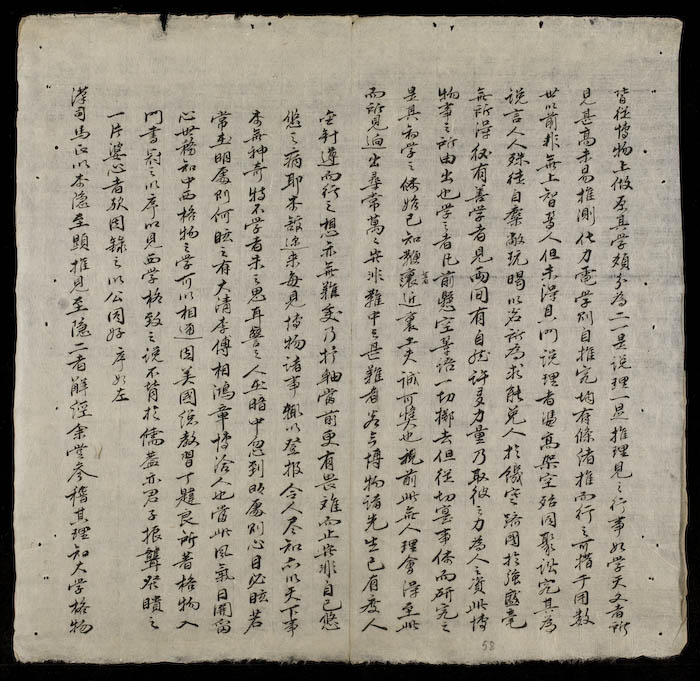 皆從博物上做原其學頗分為二一是說理一是推理見之行事如學天文者所
見甚高未易推測化力電學則自推究均有條緒推而行之可措于用數
世以前非無上智哲人但未得其門說理者憑高架空殆同聚訟究其為
說言人人殊徒自敝玩愒以名所為求能免人於饑寒躋國於強盛毫
無所得復有善學者見兩間有自然許多力量乃取彼之力為人之資此博
物事之所由出也學之者比前懸空語一切擲去但從切實事體而研究之
是其初學之條始已知鞭着裏近裏工夫誠可獎也概前此無人理會深至此
而所見迥出尋常萬萬此非難中之甚難者若今博物諸先生已有度人
金針遵而行之想亦無難矣乃抒軸當前更有畏難而止此非自己悠
悠之病耶本館近來每見博物諸事輒以登報令人盡知亦以天下事
本無神奇特不學者未之思耳譬之人坐暗中忽到明處則心目必眩若
常在明處則何眩之有大清李傅相鴻章博洽人也當此風氣日開留
心世務知中西格物之學可以相通因美國總教習丁韙良所著格物入
門書爰之以序以見西學格致之說不背於儒蓋亦君子振聾發瞶之
一片婆心者歟因錄之以公同好 序如左
漢司馬氏以本隱至顯推見至隱二者解經余嘗參稽其理知大學格物
58